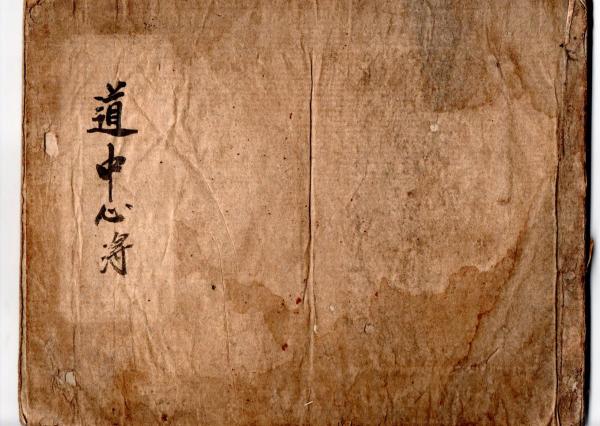 道中心得